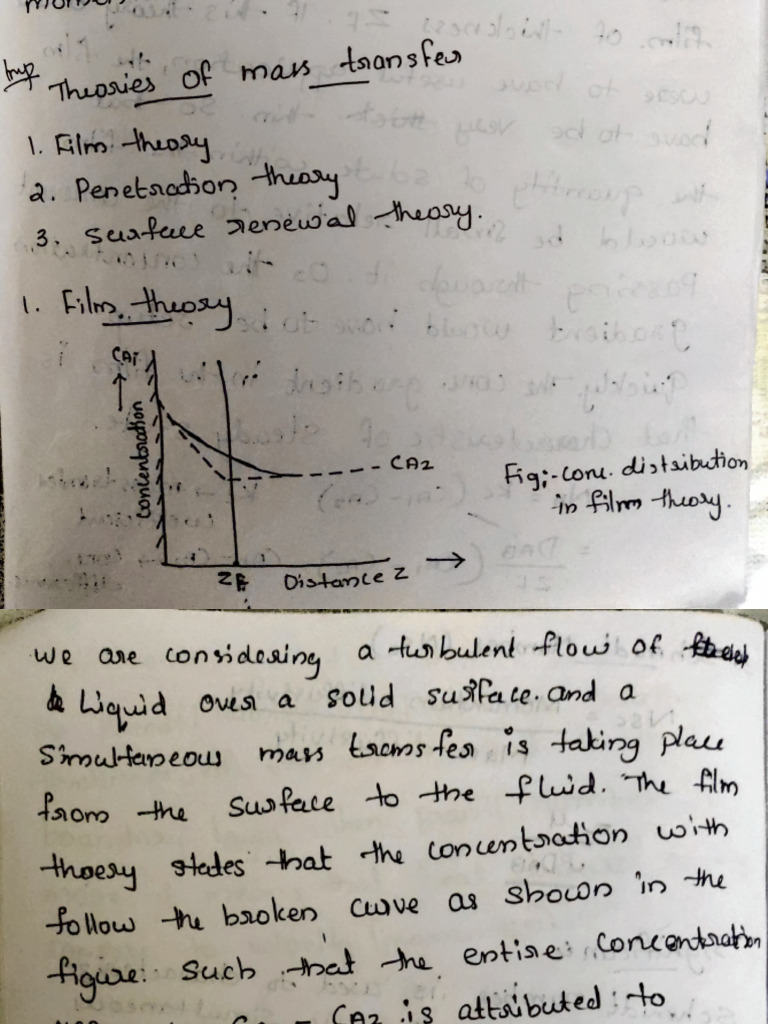 Imp Theories of mass transfer
1. Film theory
2. Penetration theory
3. surface renewal theory.
1. Film theory
CAi
Concentration
CA2
Fig:-conc. distribution
in film theory.
ZF Distance Z
we are considering a turbulent flow of
Liquid over a solid surface. and a
Simultaneous mass transfer is taking place
from the surface to the fluid. The film
thoery states that the concentration with
follow the broken curve as shown in the
figure. Such that the entire concentration
CA2 is attributed to